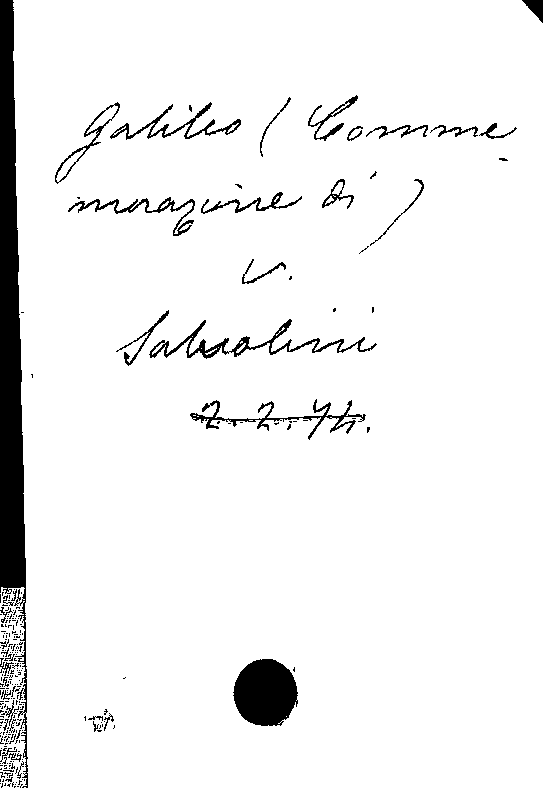 Galileo (Comme-
morazione di)
v.
Sabsolini
2.2.74.